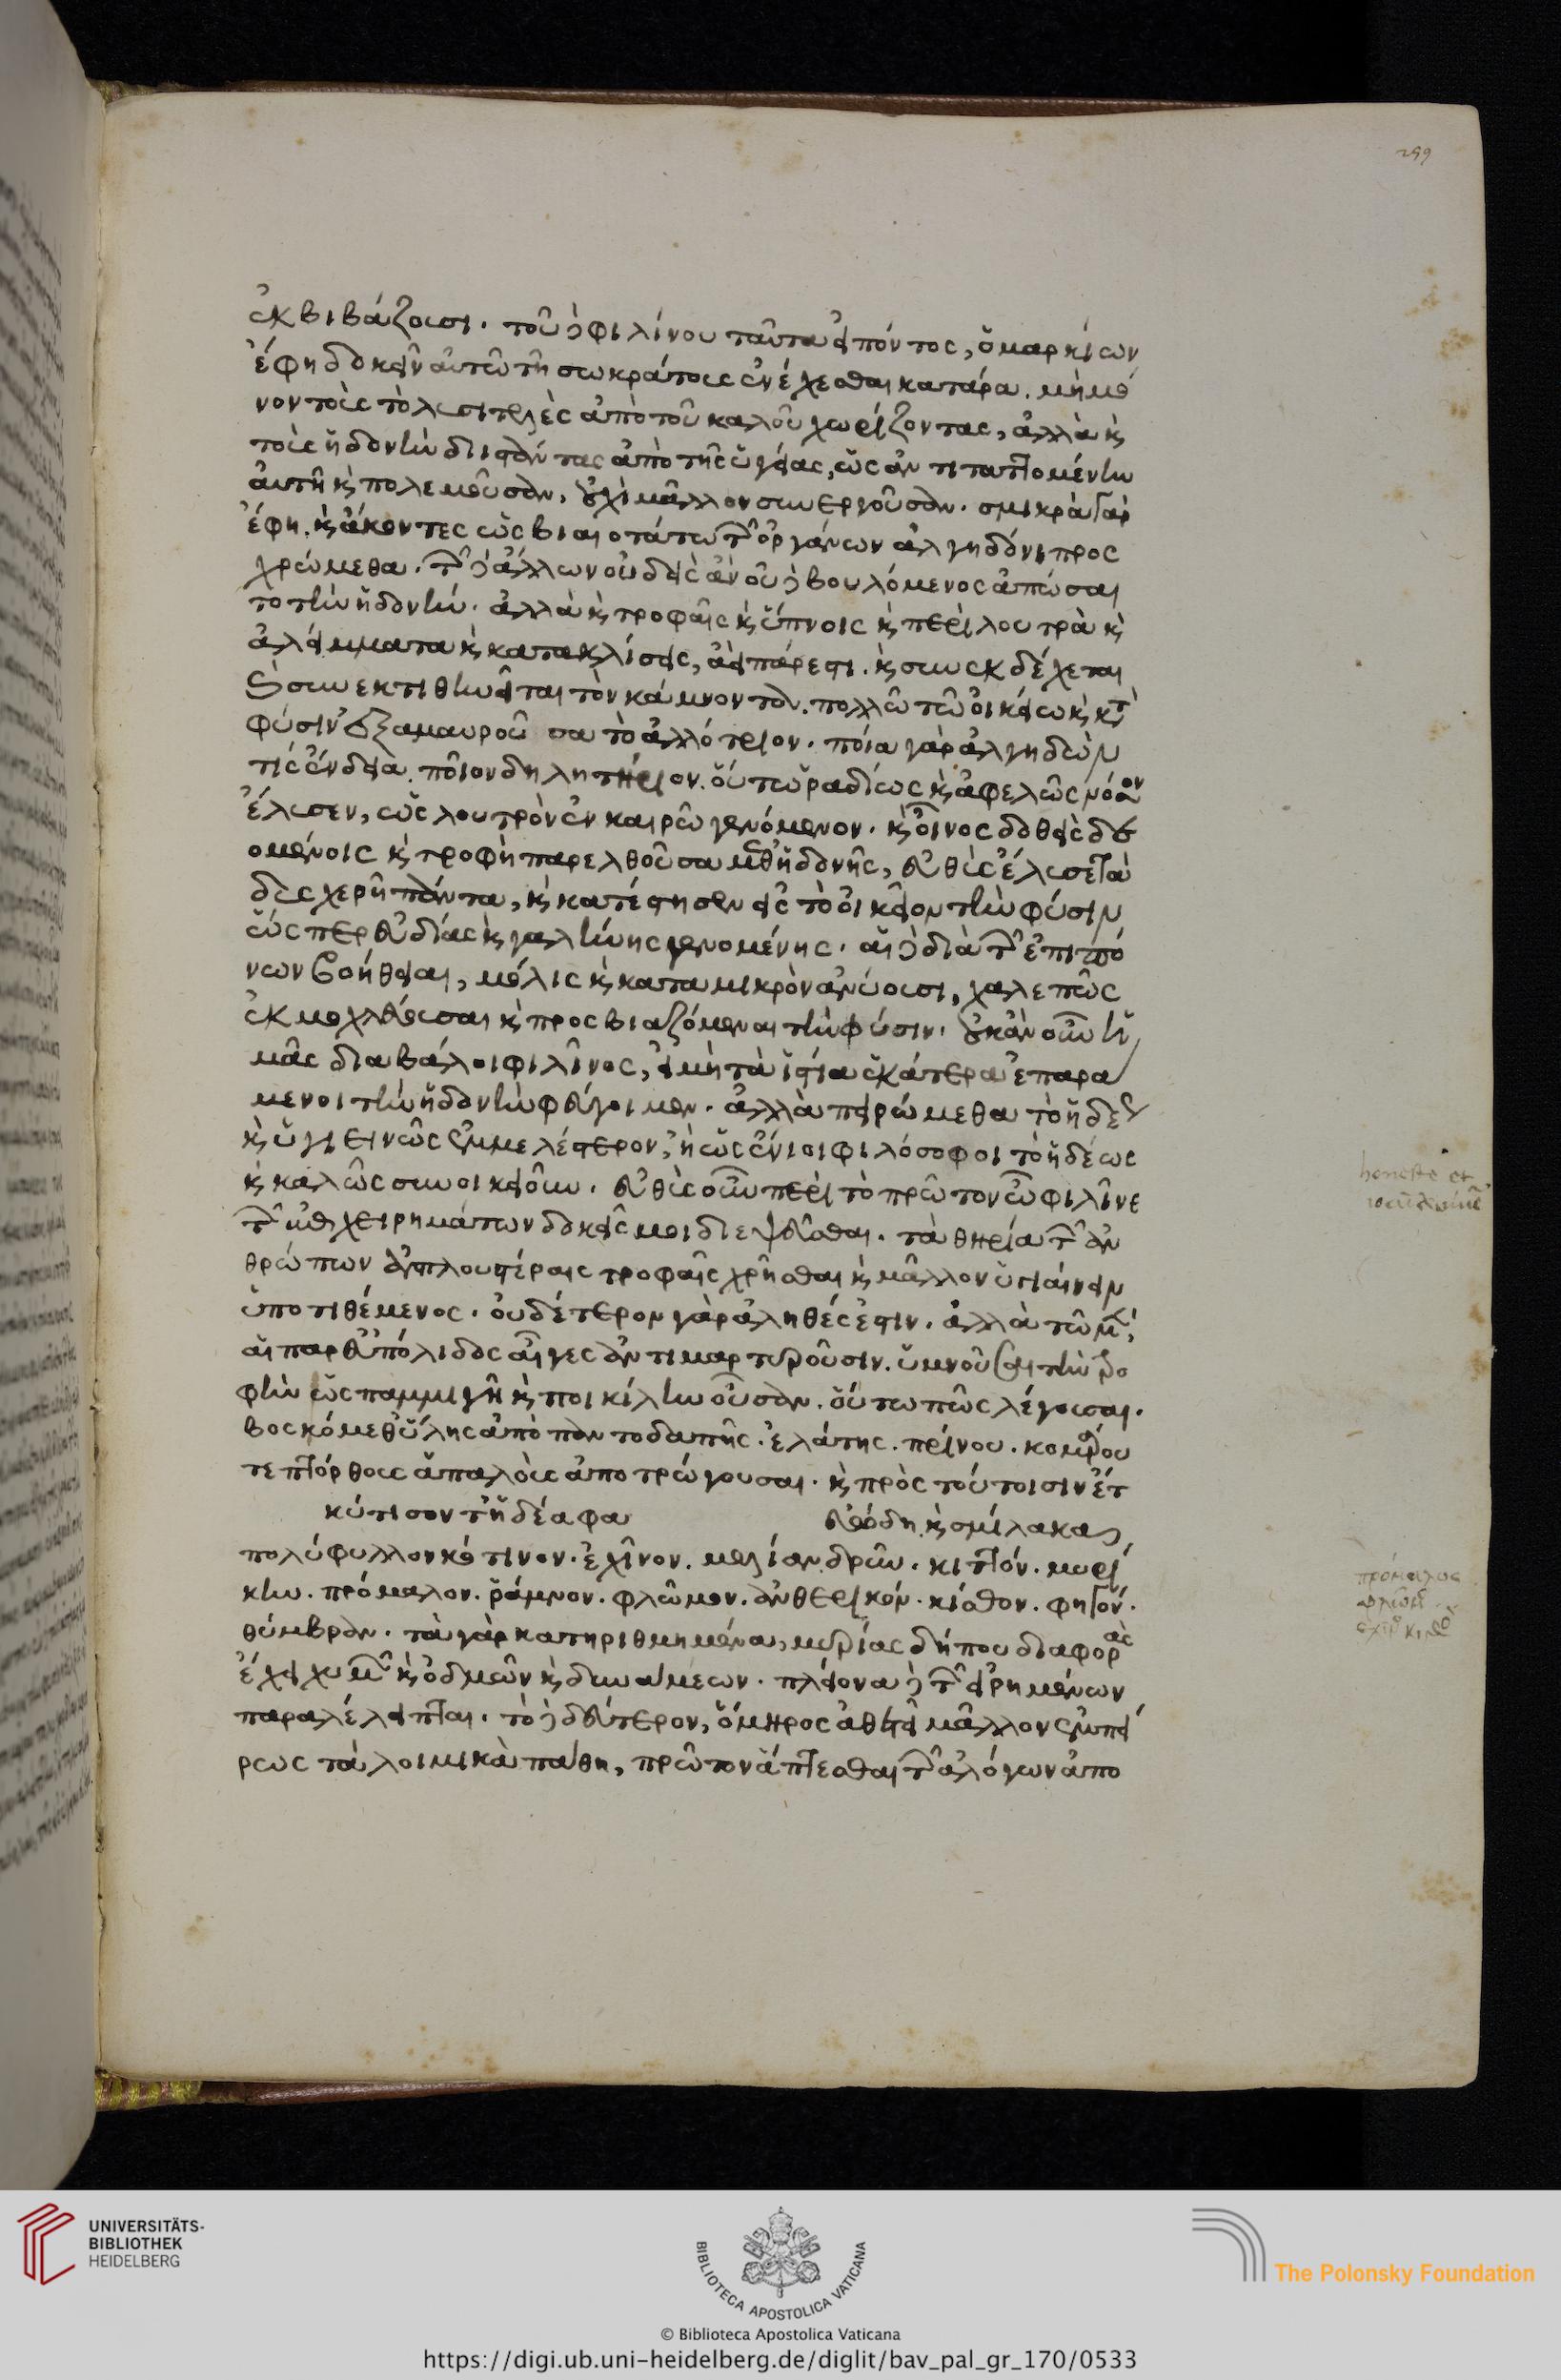 259
ἐκβιβάζουσι. τοῦ δὲ φιλίνου ταῦτα εἰπόντος, ὁ μαρκίων
ἔφη δοκεῖν αὐτῷ τῇ σωκράτους ἐνέχεσθαι κατάρα. μὴ μό
νον τοὺς τὸ λυσιτελὲς ἀπὸ τοῦ καλοῦ χωρίζοντας, ἀλλὰ καὶ
τοὺς ἡδονὴν διιστάντας ἀπὸ τῆς ὑγείας, ὡς ἀντιταττομένην
αὐτῇ καὶ πολεμοῦσαν, οὐχὶ μᾶλλον συνεργοῦσαν. σμικρὰ γὰρ
ἔφη. καὶ ἄκοντες ὡς βιαιοτάτῳ τῶν ὀργάνων ἀλγηδόνι προς
χρώμεθα. τῶν δὲ ἄλλων οὐδεὶς ἂν οὐδὲ βουλόμενος ἀπώσαι
το τὴν ἡδονήν. ἀλλὰ καὶ τροφαῖς καὶ ὕπνοις καὶ περὶ λουτρὰ καὶ
ἀλείμματα καὶ κατακλίσεις, ἀεὶ πάρεστι. καὶ συνεκδέχεται
καὶ συνεκτιθηνεῖται τὸν κάμνοντα. πολλῷ τῷ οἰκείῳ καὶ κατὰ
φύσιν ἐξαμαυροῦσα τὸ ἀλλότριον. ποία γὰρ ἀλγηδών
τίς ἔνδεια. ποῖον δηλητήριον. οὕτω ῥαδίως καὶ ἀφελῶς νόσον
ἔλυσεν, ὡς λουτρὸν ἐν καιρῷ γενόμενον. καὶ οἶνος δοθεὶς δε
ομένοις καὶ τροφὴ παρελθοῦσα μεθ' ἡδονῆς, εὐθὺς ἔλυσε τὰ
δυσχερῆ πάντα, καὶ κατέστησεν εἰς τὸ οἰκεῖον τὴν φύσιν
ὥςπερ εὐδίας καὶ γαλήνης γενομένης. αἱ δὲ διὰ τῶν ἐπιπό
νων βοήθειαι, μόλις καὶ κατα μικρὸν ἀνύουσι, χαλεπῶς
ἐκμοχλεύουσαι καὶ προςβιαζόμεναι τὴν φύσιν. οὐκ ἂν οὖν ἡ
μᾶς διαβάλοι φιλῖνος, εἰ μὴ τὰ ἱστία ἑκάτερα ἐπαρά
μενοι τὴν ἡδονὴν φεύγοιμεν. ἀλλὰ πειρώμεθα τὸ ἡδέως
καὶ ὑγιεινῶς ἐμμελέστερον, ἢ ὡς ἔνιοι φιλόσοφοι τὸ ἡδέως
καὶ καλῶς συνοικειοῦν. εὐθὺς οὖν περὶ τὸ πρῶτον ὦ φιλῖνε
τῶν ἐπιχειρημάτων δοκεῖς μοι διεψεῦσθαι. τὰ θηρία τῶν ἀν
θρώπων ἁπλουστέραις τροφαῖς χρῆσθαι καὶ μᾶλλον ὑγιαίνειν
ὑποτιθέμενος. οὐδέτερον γὰρ ἀληθές ἐστιν. ἀλλὰ τῷ μὲν
αἱ παρ' εὐπόλιδος αἶγες ἀντιμαρτυροῦσιν. ὑμνοῦσαι τὴν τρο
φὴν ὡς παμμιγῆ καὶ ποικίλην οὖσαν. οὕτω πῶς λέγουσαι.
βοσκόμεθ' ὕλης ἀπὸ παντοδαπῆς. ἐλάτης. πρίνου. κομάρου
τε πτόρθους ἁπαλοὺς ἀποτρώγουσαι. καὶ πρὸς τούτοισιν ἔτ
κύτισον τ' ἠδέ αφα εὐώδη καὶ σμίλακα
πολύφυλλον κότινον. ἐχῖνον. μελίαν δρῦν. κιττόν. μυρί
κην. πρόμαλον. ῥάμνον. φλῶμον. ἀνθερίκον. κίσθον. φηγόν.
θύμβραν. τὰ γὰρ κατηριθμημένα, μυρίας δήπου διαφορὰς
ἔχει χυμῶν καὶ ὀδμῶν καὶ δυνάμεων. πλείονα δὲ τῶν εἰρημένων
παραλέλειπται. τὸ δὲ δεύτερον, ὅμηρος ἀθετεῖ μᾶλλον ἐμπεί
ρως τὰ λοιμικὰ πάθη, πρῶτον ἅπτεσθαι τῶν ἀλόγων ἀπο
honeste et
πρόμαλος
UNIVERSITÄTS-
BIBLIOTHEK
HEIDELBERG
BIBLIOTECA APOSTOLICA VATICANA
The Polonsky Foundation
© Biblioteca Apostolica Vaticana
https://digi.ub.uni-heidelberg.de/diglit/bav_pal_gr_170/0533